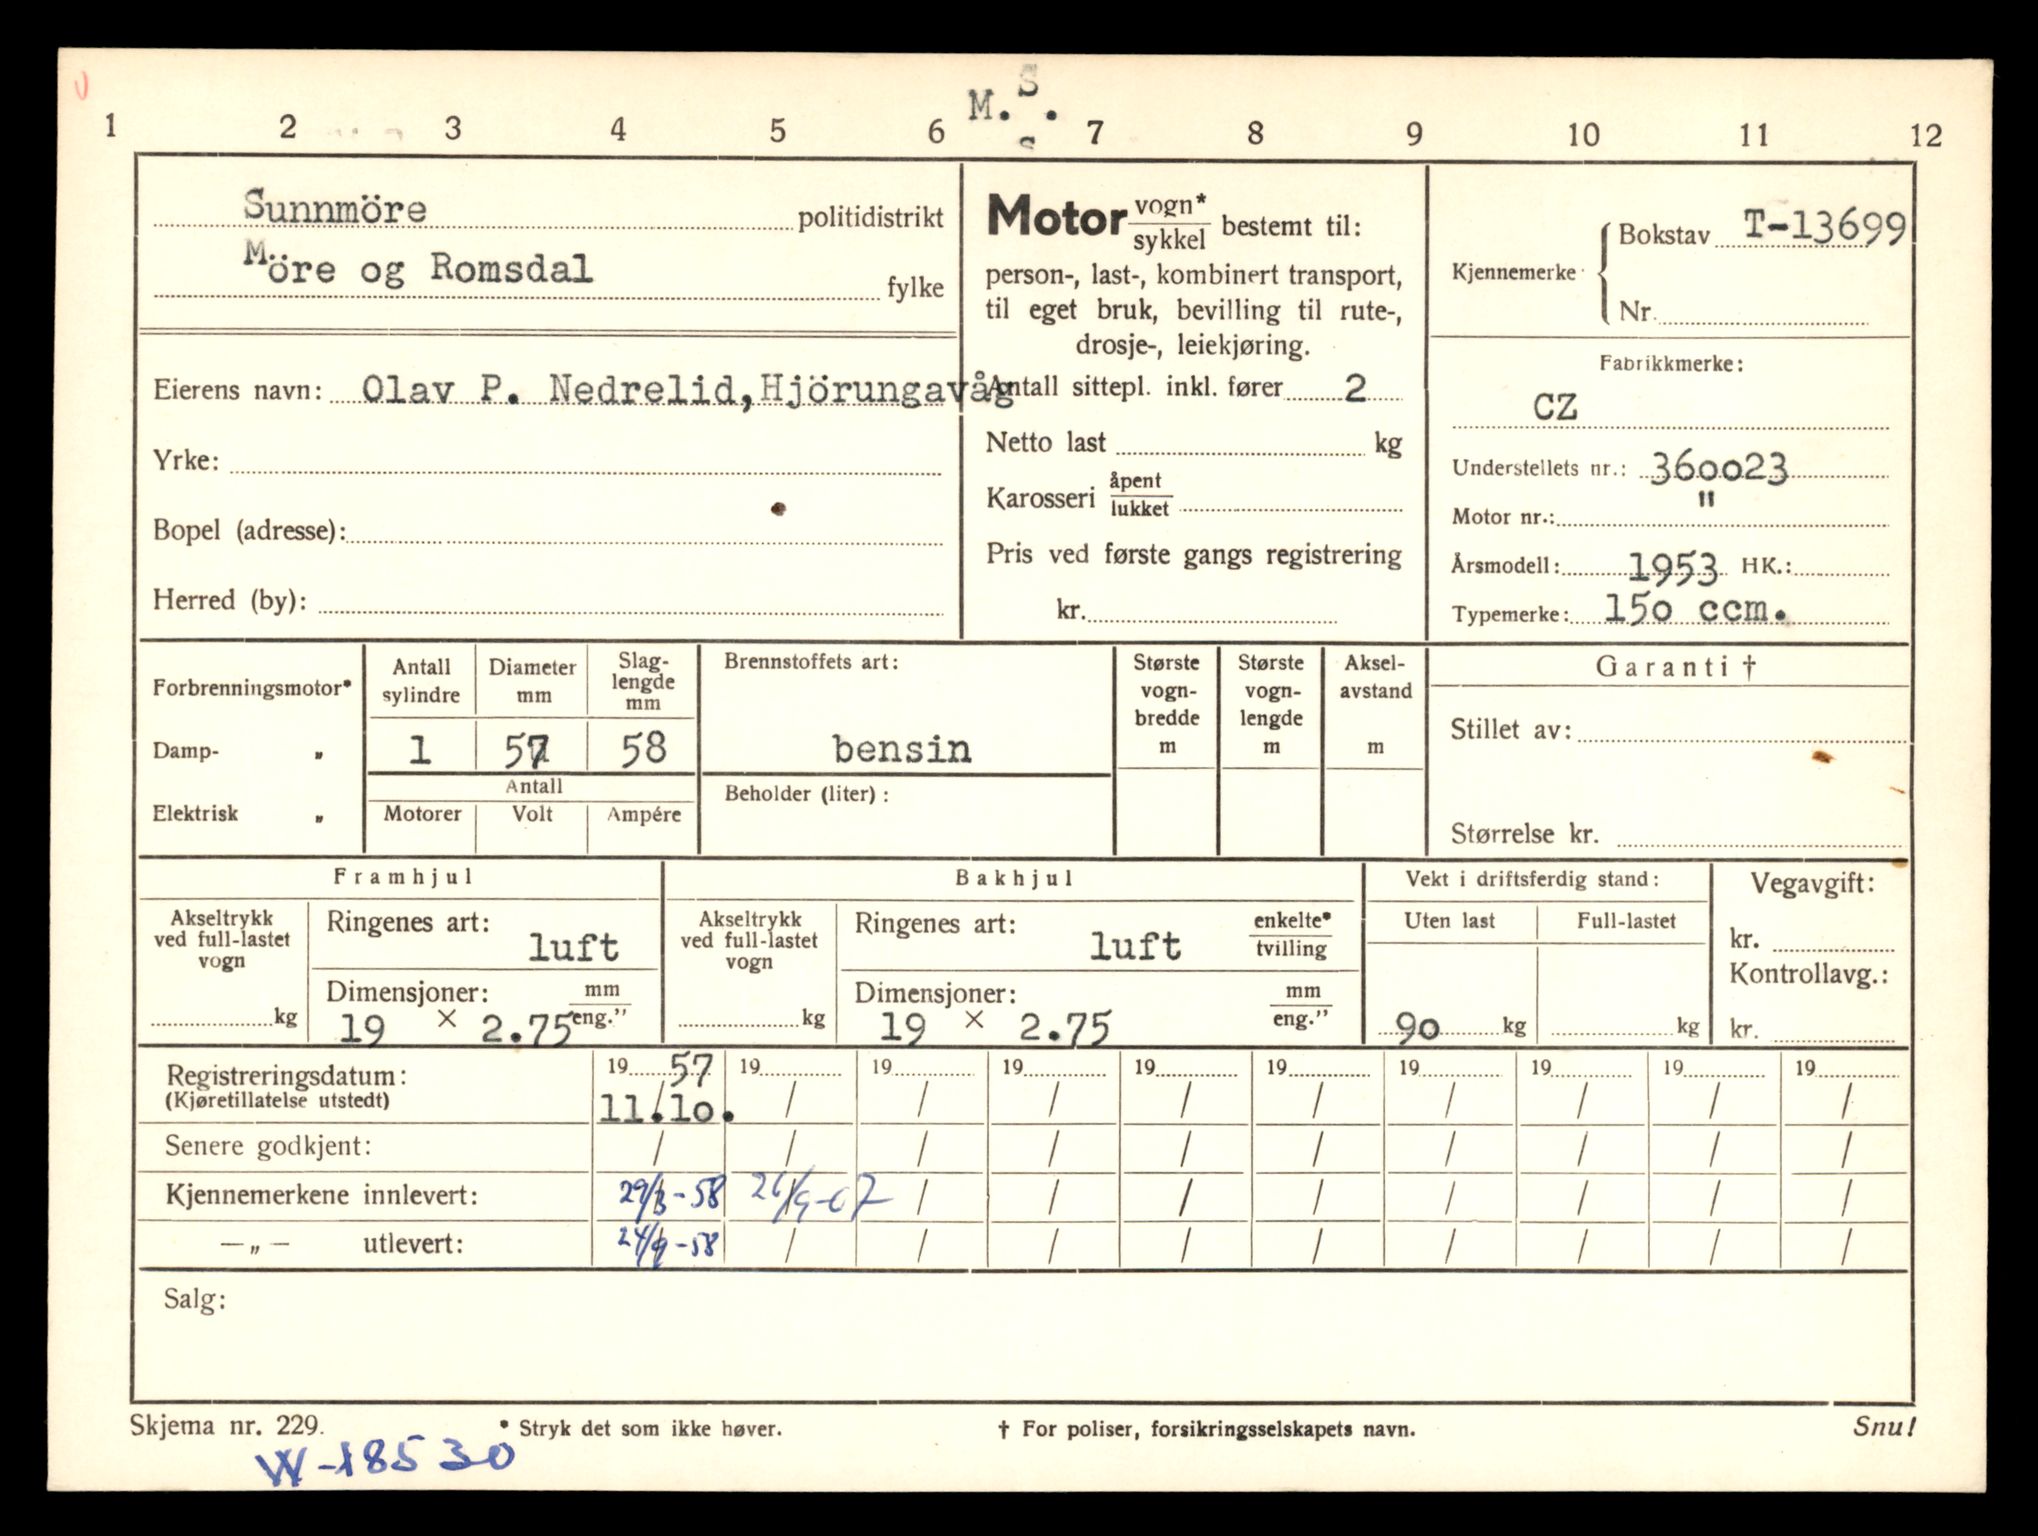 M.S.
1 2 3 4 5 6 7 8 9 10 11 12
Sunnmöre politidistrikt
Möre og Romsdal fylke
Eierens navn: Olav P. Nedrelid, Hjörungavåg
Yrke:
Bopel (adresse):
Herred (by):
Motor vogn* / sykkel bestemt til:
person-, last-, kombinert transport,
til eget bruk, bevilling til rute-,
drosje-, leiekjøring.
Antall sittepl. inkl. fører 2
Netto last kg
Karosseri åpent / lukket
Pris ved første gangs registrering
kr.
Kjennemerke { Bokstav T-13699
Nr.
Fabrikkmerke:
CZ
Understellets nr.: 360023
Motor nr.: "
Årsmodell: 1953 HK.:
Typemerke: 150 ccm.
Forbrenningsmotor*
Damp- „
Elektrisk „
Antall sylindre
Diameter mm
Slag-lengde mm
1 58
Antall
Motorer Volt Ampére
Brennstoffets art:
bensin
Beholder (liter):
Største vogn-bredde m
Største vogn-lengde m
Aksel-avstand m
Garanti †
Stillet av:
Størrelse kr.
Framhjul
Akseltrykk ved full-lastet vogn
kg
Ringenes art: luft
Dimensjoner: mm / eng.”
19 × 2.75
Bakhjul
Akseltrykk ved full-lastet vogn
kg
Ringenes art: luft enkelte* / tvilling
Dimensjoner: mm / eng.”
19 × 2.75
Vekt i driftsferdig stand:
Uten last Full-lastet
90 kg kg
Vegavgift:
kr.
Kontrollavg.:
kr.
Registreringsdatum: 19 57 19 19 19 19 19 19 19 19 19
(Kjøretillatelse utstedt) 11.10. / / / / / / / / /
Senere godkjent: / / / / / / / / / /
Kjennemerkene innlevert: 29/3-58 / / / / / / / /
— „ — utlevert: 24/9-58 / / / / / / / / /
Salg:
Skjema nr. 229. * Stryk det som ikke høver. † For poliser, forsikringsselskapets navn. Snu!
W-18530